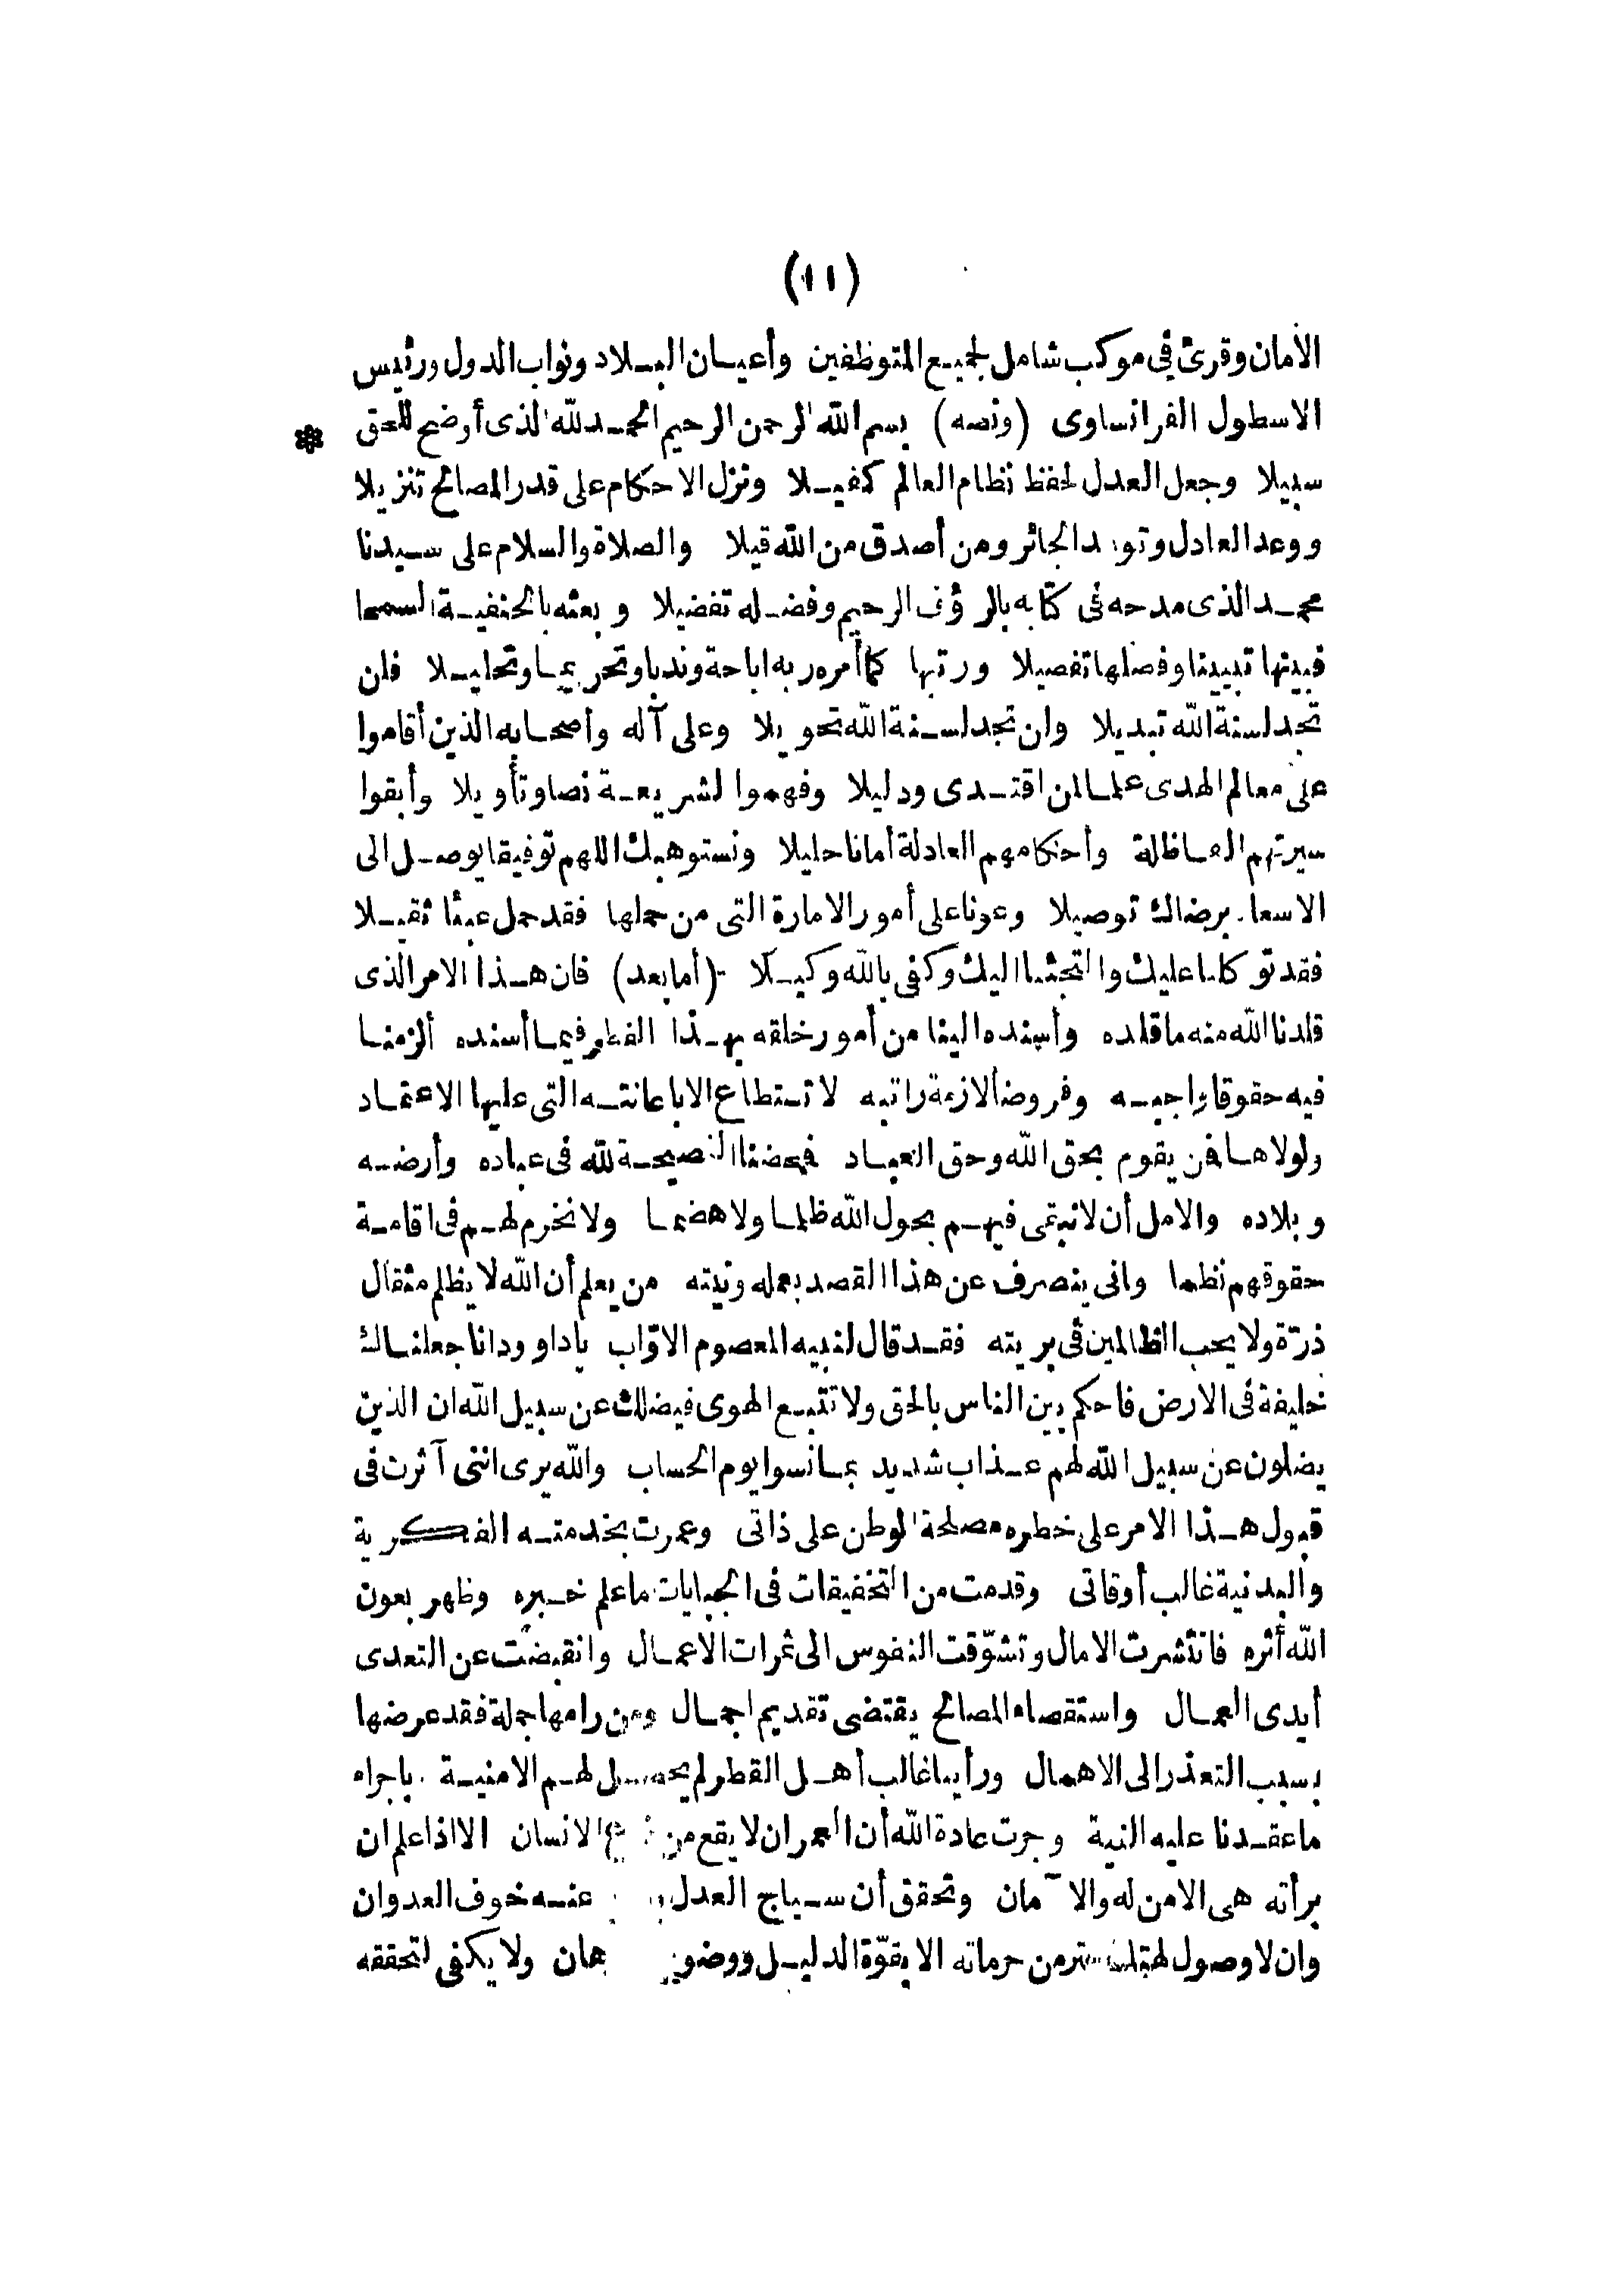 (١١)
الأمان وقرئ في موكب شامل لجميع المتوظفين وأعيان البلاد ونواب الدول ورئيس
الاسطول الفرانساوى (ونصه) بسم الله الرحمن الرحيم الحمد لله الذى أوضح للحق *
سبيلا وجعل العدل لحفظ نظام العالم كفيلا ونزل الاحكام على قدر المصالح تنزيلا
ووعد العادل وتوعد الجائر ومن أصدق من الله قيلا والصلاة والسلام على سيدنا
محمد الذى مدحه فى كتابه بالرؤف الرحيم وفضله تفضيلا وبعثه بالحنفية السمحا
فبينها تبيينا وفصلها تفصيلا ورتبها كما أمره ربه اباحة وندبا وتحريما وتحليلا فلن
تجد لسنة الله تبديلا ولن تجد لسنة الله تحويلا وعلى آله وأصحابه الذين أقاموا
على معالم الهدى علما لمن اقتدى ودليلا وفهموا الشريعة نصا وتأويلا وأبقوا
سيرتهم الفاضلة وأحكامهم العادلة أمانا جليلا ونستوهبك اللهم توفيقا يوصل الى
الاسعاد برضاك توصيلا وعونا على أمور الامارة التى من حملها فقد حمل عبئا ثقيلا
فقد توكلنا عليك والتجئنا اليك وكفى بالله وكيلا (أما بعد) فان هذا الامر الذى
قلدنا الله منه ما قلده وأسنده الينا من أمور خلقه بهذا القطر فيما أسنده ألزمنا
فيه حقوقا واجبه وفروضا لازمة راتبه لا تستطاع الا باعانته التى عليها الاعتماد
ولولاها فمن يقوم بحق الله وحق العباد فمحضنا النصيحة لله فى عباده وأرضه
وبلاده والامل أن لا نبقى فيهم بحول الله ظلما ولا هضما ولا نخرم لهم فى اقامة
حقوقهم نظما وانى ينصرف عن هذا القصد بعمله ونيته من يعلم أن الله لا يظلم مثقال
ذرّة ولا يحب الظالمين فى بريته فقد قال لنبيه المعصوم الاوّاب ياداوود انا جعلناك
خليفة فى الارض فاحكم بين الناس بالحق ولا تتبع الهوى فيضلك عن سبيل الله ان الذين
يضلون عن سبيل الله لهم عذاب شديد بما نسوا يوم الحساب والله يرى اننى آثرت فى
قبول هذا الامر على خطره مصلحة الوطن على ذاتى وعمرت بخدمته الفكرية
والبدنية غالب أوقاتى وقدمت من التخفيفات فى الجبايات ما علم خبره وظهر بعون
الله أثره فانتشرت الامال وتشوّقت النفوس الى ثمرات الاعمال وانقبضت عن التعدى
أيدى العمال واستقصاء المصالح يقتضى تقديم اجمال ومن رامها جملة فقد عرضها
بسبب التعذر الى الاهمال ورأينا غالب أهل القطر لم يحصل لهم الامنية باجراء
ما عقدنا عليه النية وجرت عادة الله أن العمران لا يقع من الانسان الا اذا علم ان
برأته هى الامن له والامان وتحقق أن سياج العدل عنه خوف العدوان
وان لا وصول لهتك ستر من حرماته الا بقوّة الدليل ووضوح ولا يكفى لتحققه